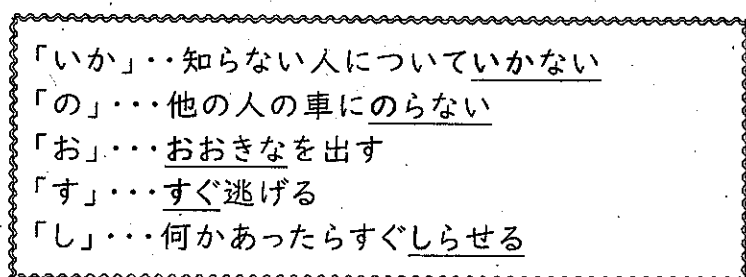 「いか」・・知らない人についていかない
「の」・・・他の人の車にのらない
「お」・・・おおきなを出す
「す」・・・すぐ逃げる
「し」・・・何かあったらすぐしらせる